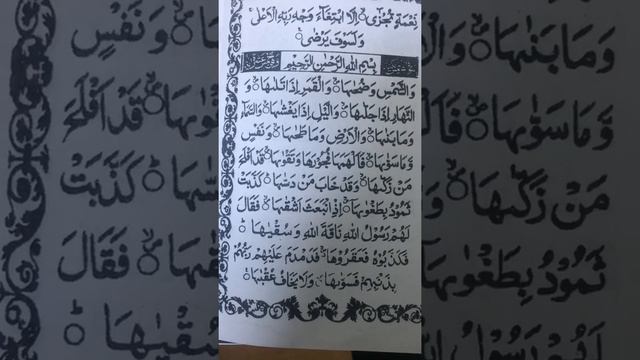 نِّعْمَةٍ تُجْزٰٓى ۙ اِلَّا ابْتِغَآءَ وَجْهِ رَبِّهِ الْاَعْلٰى ۚ
وَلَسَوْفَ يَرْضٰى
بِسْمِ اللّٰهِ الرَّحْمٰنِ الرَّحِيْمِ
وَالشَّمْسِ وَضُحٰىهَا ۙ وَالْقَمَرِ اِذَا تَلٰىهَا ۙ وَ
النَّهَارِ اِذَا جَلّٰىهَا ۙ وَالَّيْلِ اِذَا يَغْشٰىهَا ۙ وَالسَّمَآءِ
وَمَا بَنٰىهَا ۙ وَالْاَرْضِ وَمَا طَحٰىهَا ۙ وَنَفْسٍ
وَّمَا سَوّٰىهَا ۙ فَاَلْهَمَهَا فُجُوْرَهَا وَتَقْوٰىهَا ۙ قَدْ اَفْلَحَ
مَنْ زَكّٰىهَا ۙ وَقَدْ خَابَ مَنْ دَسّٰىهَا ؕ كَذَّبَتْ
ثَمُوْدُ بِطَغْوٰىهَا ۙ اِذِ انْۢبَعَثَ اَشْقٰىهَا ۙ فَقَالَ
لَهُمْ رَسُوْلُ اللّٰهِ نَاقَةَ اللّٰهِ وَسُقْيٰهَا ؕ
فَكَذَّبُوْهُ فَعَقَرُوْهَا ۙ فَدَمْدَمَ عَلَيْهِمْ رَبُّهُمْ
بِذَنْۢبِهِمْ فَسَوّٰىهَا ۙ وَلَا يَخَافُ عُقْبٰهَا